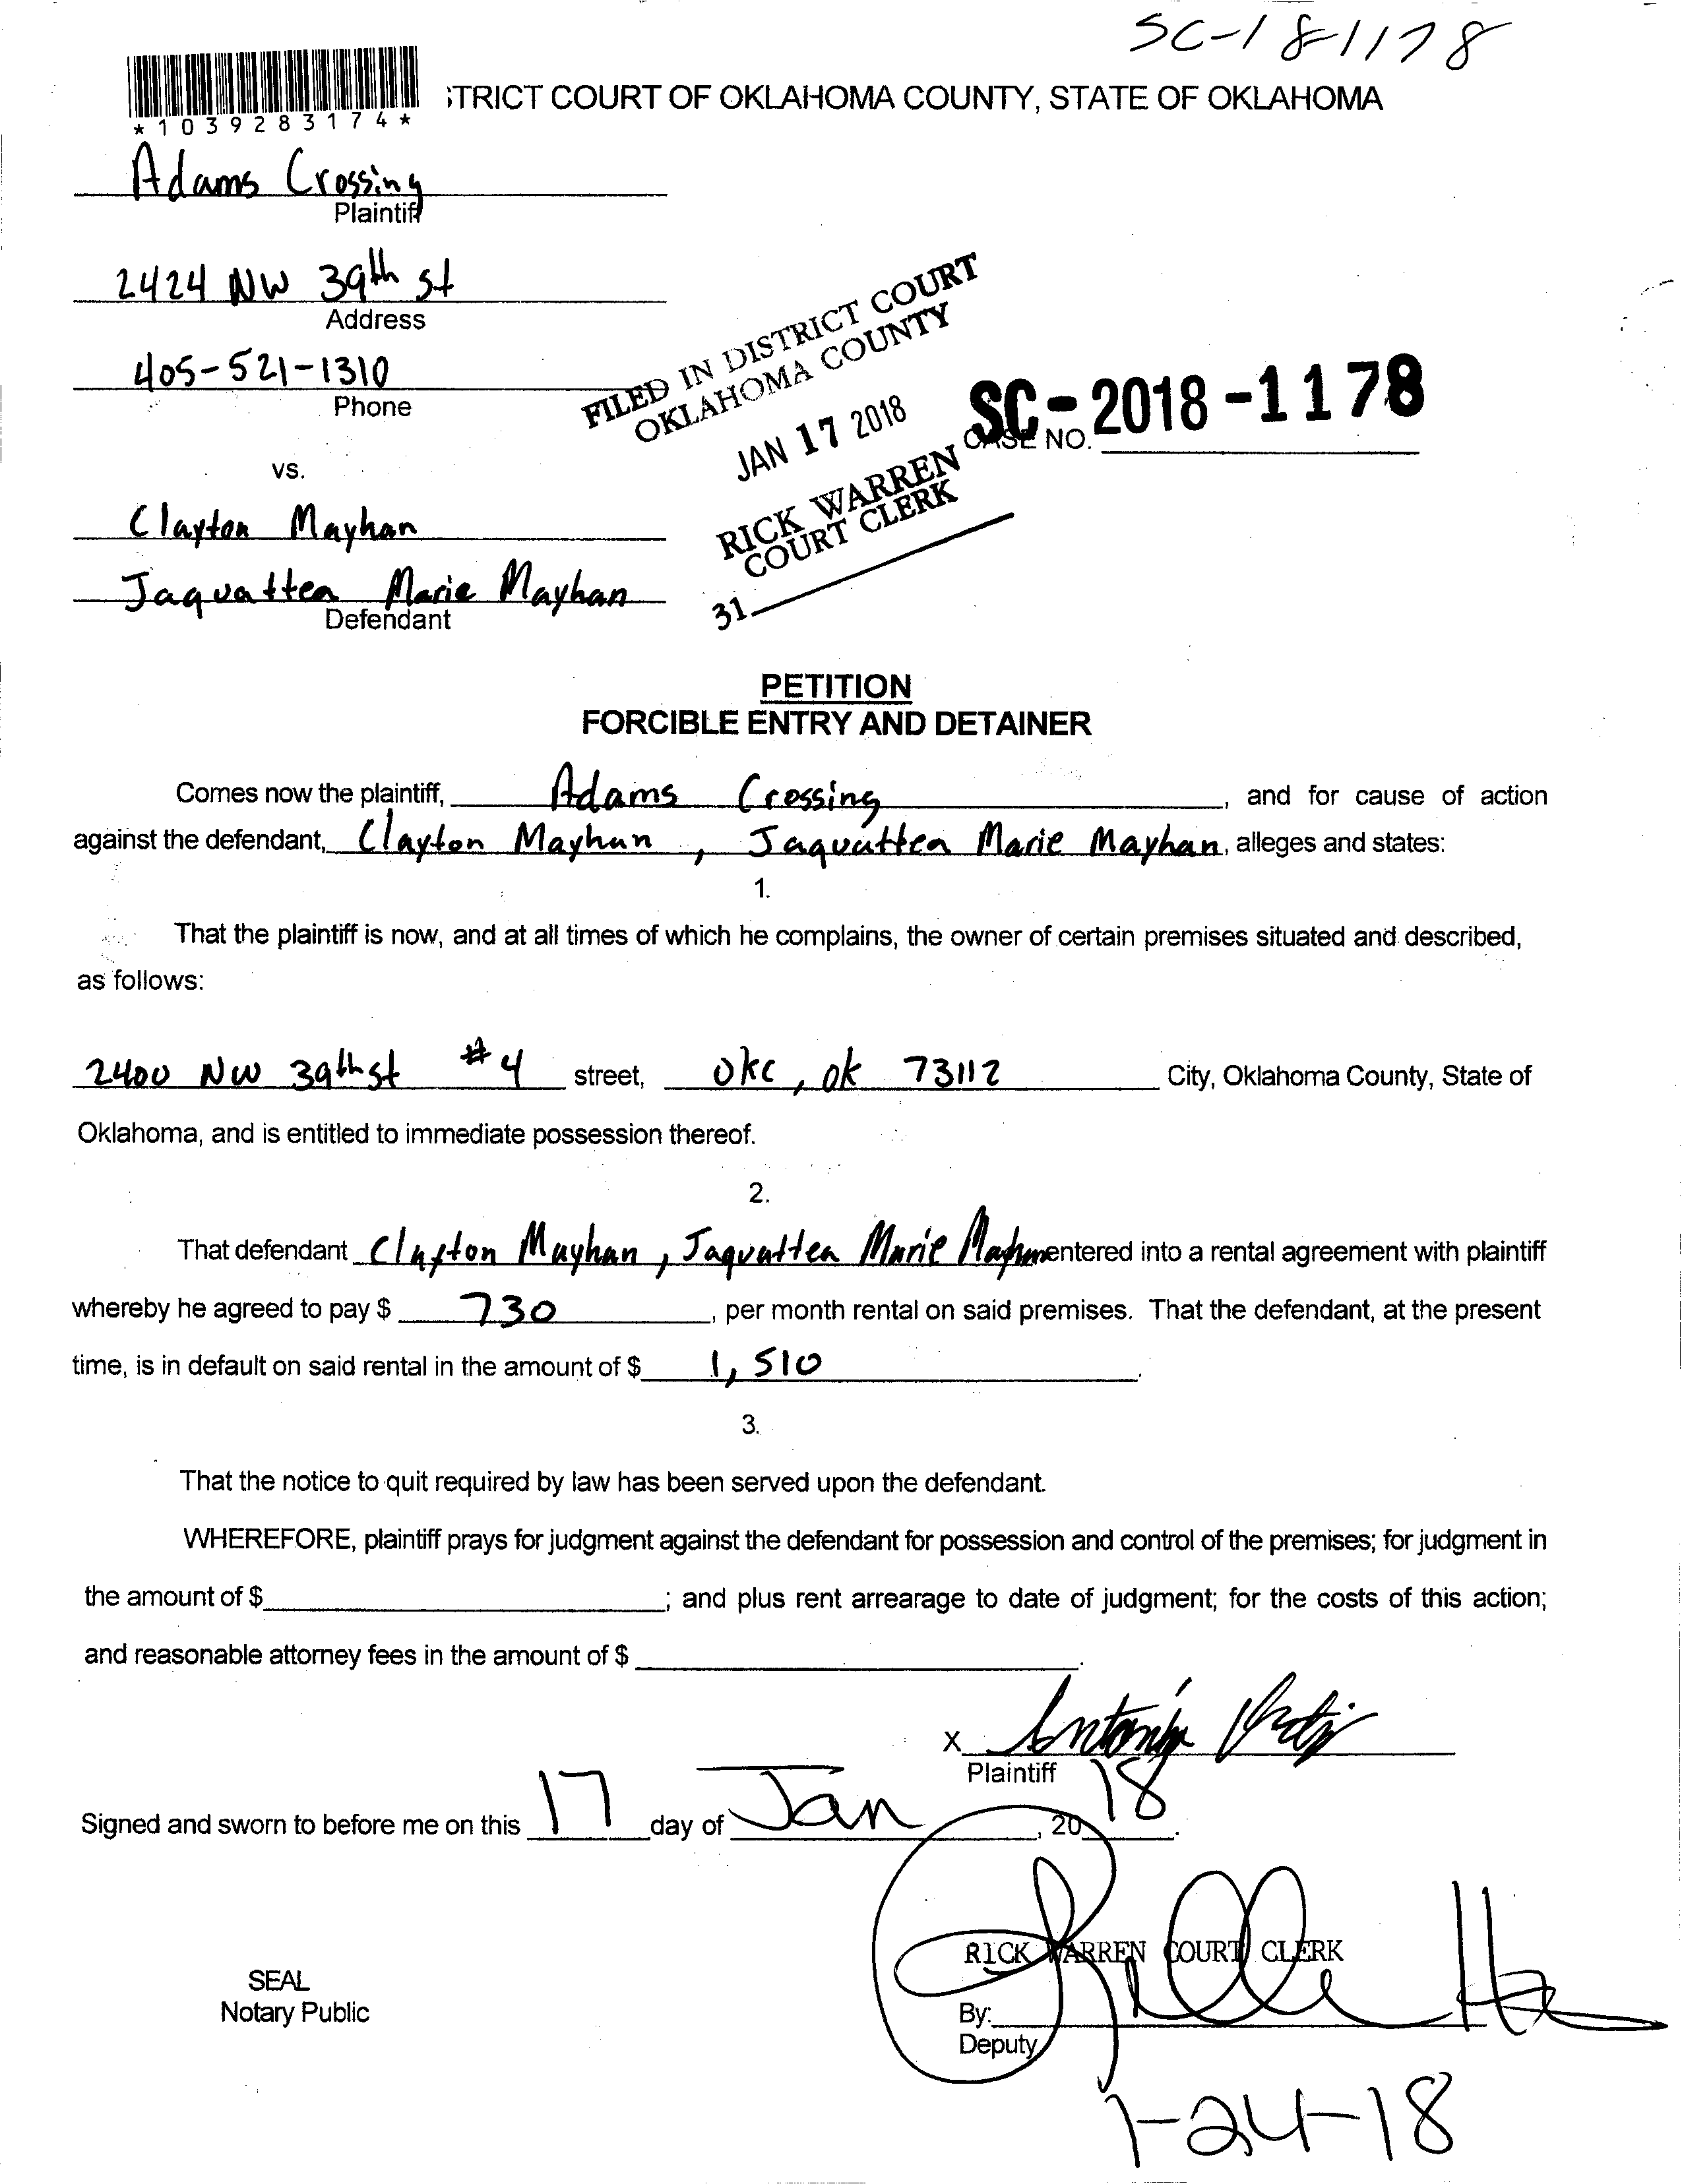 SC-18-1178
*1039283174*
TRICT COURT OF OKLAHOMA COUNTY, STATE OF OKLAHOMA
Adams Crossing
Plaintiff
2424 NW 39th St
Address
405-521-1310
Phone
FILED IN DISTRICT COURT
OKLAHOMA COUNTY
JAN 17 2018
RICK WARREN
COURT CLERK
31
SC-2018-1178
CASE NO.
vs.
Clayton Mayhan
Jaquatten Marie Mayhan
Defendant
PETITION
FORCIBLE ENTRY AND DETAINER
Comes now the plaintiff, Adams Crossing, and for cause of action
against the defendant, Clayton Mayhan, Jaquatten Marie Mayhan, alleges and states:
1.
That the plaintiff is now, and at all times of which he complains, the owner of certain premises situated and described,
as follows:
2400 NW 39th st #4 street, OKC, OK 73112 City, Oklahoma County, State of
Oklahoma, and is entitled to immediate possession thereof.
2.
That defendant Clayton Mayhan, Jaquatten Marie Mayhan entered into a rental agreement with plaintiff
whereby he agreed to pay $ 730, per month rental on said premises. That the defendant, at the present
time, is in default on said rental in the amount of $ 1,510.
3.
That the notice to quit required by law has been served upon the defendant.
WHEREFORE, plaintiff prays for judgment against the defendant for possession and control of the premises; for judgment in
the amount of $ ; and plus rent arrearage to date of judgment; for the costs of this action;
and reasonable attorney fees in the amount of $ .
X
Plaintiff
Signed and sworn to before me on this 17 day of Jan, 2018.
RICK WARREN COURT CLERK
SEAL
Notary Public
By:
Deputy
1-24-18